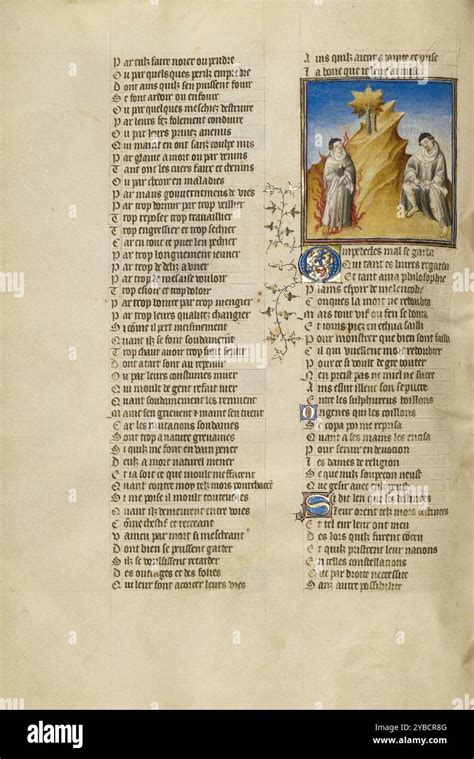 Par eulz faire noier ou pendre
Ou par quelques perilz emprendre
Dont ains quilz sen puissent fouir
Se font ardoir ou enfouir
Ou par quelques meschies destruire
Par leurs fez folement conduire
Ou par leurs privez anemis
Qui maint en ont sanz coulpe mis
Par glaive a mort ou par venins
Tant ont les cuers faux et
Ou par cheoir en maladies
Par maus gouvernemens de vies
Par trop dormir par trop veillier
Trop reposer trop travaillier
Trop engressier et trop sechier
Car en tout ce puet len pechier
Par trop longuement jeuner
Par trop de deliz
Par trop de mesaise vouloir
Trop esioir et trop doloir
Par trop boivre par trop mengier
Par trop leurs qualitez changier
Si comme il pert meismement
Quant il se font soudainement
Trop chaut avoir trop froit sentir
Dont a tart sont au repentir
Ou par leurs coustumes muer
Qui moult de gent refait tuer
Quant soudainement les remuent
Maint sen grievent maint sen tuent
Car les mutacions soudaines
Sont trop a nature grevaines
Si quilz me font en vain pener
Deulz a mort naturel mener
Et ia soit ce que moult meffacent
Quant contre moy telz mors pourchacent
Si me poise il moult toutevoies
Quant ilz demeurent entre voies
Comme chestif et recreant
Vaincu par mort si mescheant
Dont bien se peussent garder
Silz se voulsissent retarder
Des oultrages et des folies
Qui leur font acorcier leurs vies
Ains quilz aient atainte et prise
La bonne que ie leur ai mise
Empedocles mal se garda
Qui tant es livres regarda
Et tant ama philosophie
Plains espoir de melencolie
Conques la mort ne redoubta
Mais tout vif ou feu se bouta
Et ioins piez en ethna sailli
Pour monstrer que bien sont failli
Cil qui vuellent mort redoubter
Pour ce si voult de gre
Nen preist pas ne miel ne sucre
Ains eslut illeuc son sepucre
Entre les sulphureus boullons
Origenes qui les coillons
Se copa poi me reprisa
Quant a ses mains les encisa
Pour servir en devocion
Les dames de religion
Si que nulz souspecon neust
Que gesir avec elles peust
Si dit len que les destinees
Leur orent telz mors destinees
Et tel eur leur ont meu
Des lors quilz furent conceu
Et quilz pristrent leur nacions
En telles constellacions
Que par droite necessite
Sanz autre possibilite
alamy
Image ID: 2YBCR8G
www.alamy.com